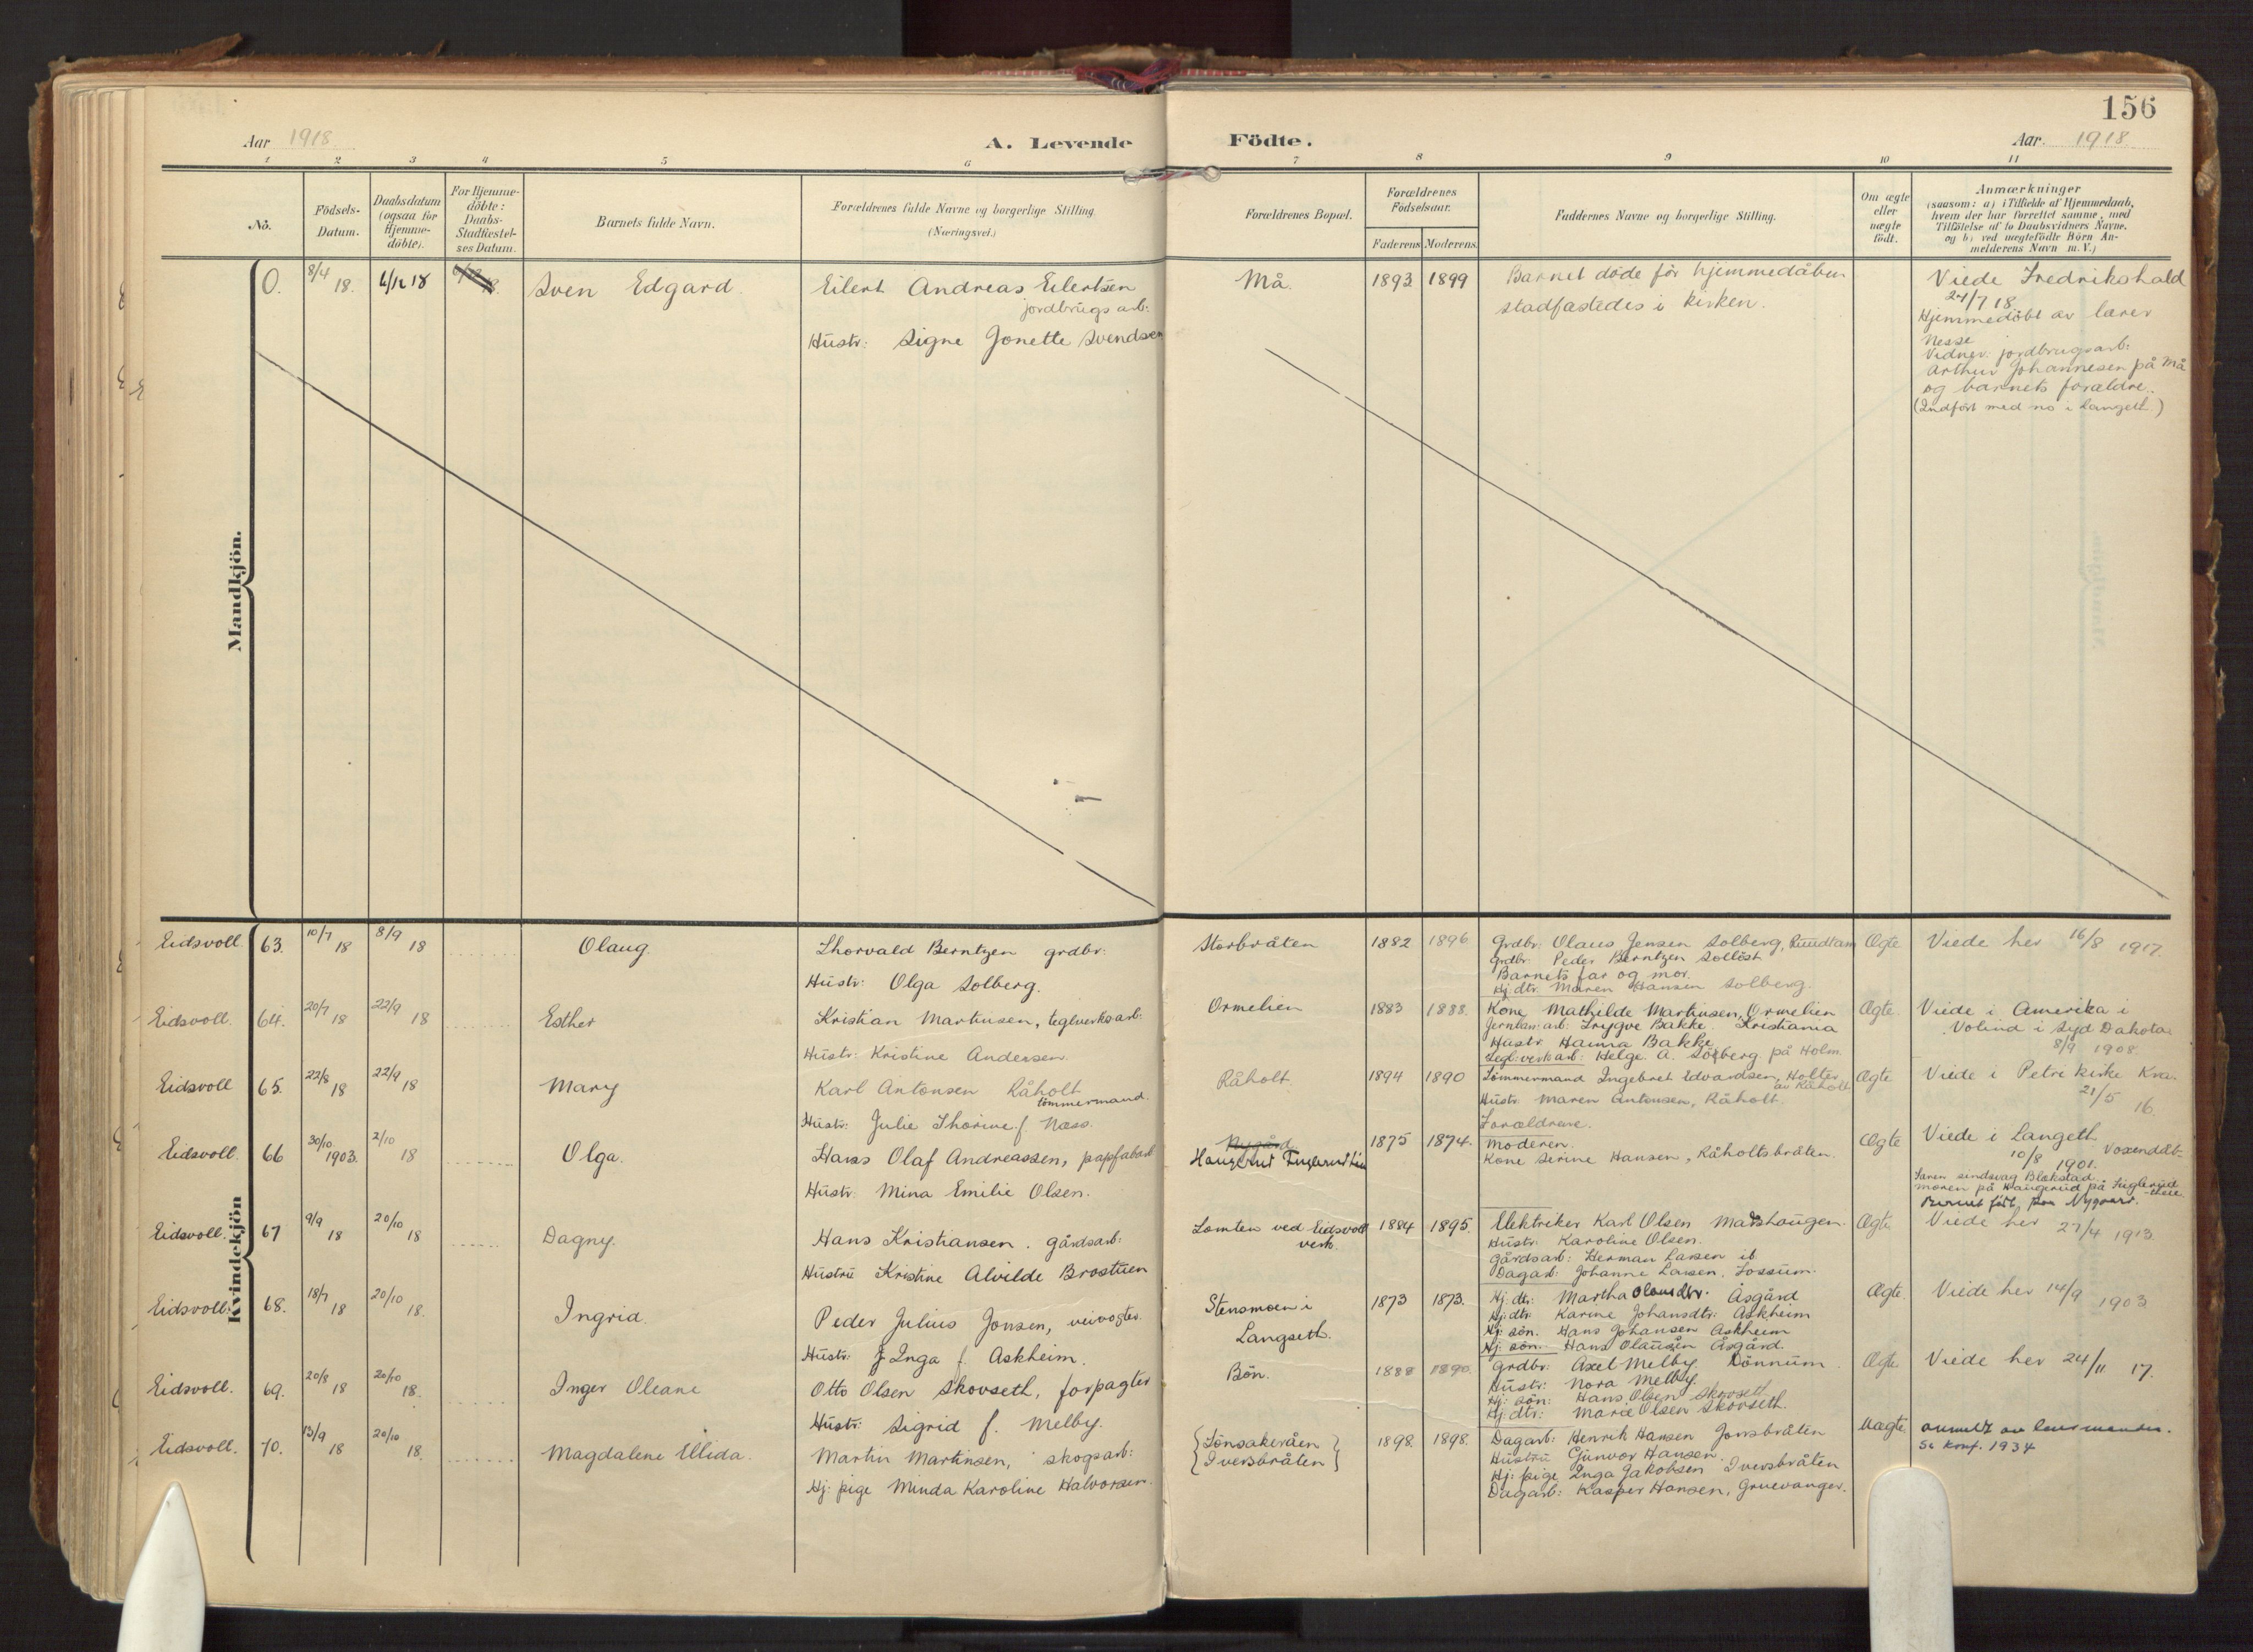 156
Aar 1918
A. Levende
Födte.
Aar. 1918
1 2 3 4 5 6 7 8 9 10 11
No.
Födsels-Datum.
Daabsdatum (ogsaa for Hjemme-döbte).
For Hjemme-döbte: Daabs-Stadfæstel-ses Datum.
Barnets fulde Navn.
Forældrenes fulde Navne og borgerlige Stilling.
(Næringsvei.)
Forældrenes Bopæl.
Forældrenes Födselsaar.
Faderens Moderens
Faddernes Navne og borgerlige Stilling.
Om ægte eller uægte födt.
Anmærkninger
(saasom: a) i Tilfælde af Hjemmedaab,
hvem der har forrettet samme, med
Tilföielse af to Daabsvidners Navne.
og b) ved uægtefödte Börn An-
melderens Navn m. V.)
Mandkjön.
0. 8/4 18. 6/12 18 Sven Edgard. Eilert Andreas Eilertsen Må. 1893 1899 Barnet døde før hjemmedåben Viede Fredrikshald
jordbrugsarb: stadfæstedes i kirken. 27/7 18
Hustr: Signe Jonette Svendsen Hjemmedöbt av lærer
Nesse
Vidner: jordbrugsarb:
Arthur Johannesen på Må
og barnets forældre.
(Indført med no i Langeth.)
Kvindekjön
Eidsvoll 63. 10/7 18 8/9 18 Olaug. Thorvald Berntzen grdbr: Storbråten 1882 1896. Grdbr: Olaus Jensen Solberg, Ægte Viede her 16/8 1917.
Grdbr. Peder Berntzen
Hustr: Olga Solberg. Barnets far og mor.
Hj. dtr. Maren Hansen Solberg.
Eidsvoll. 64. 20/7 18 22/9 18 Esther Kristian Martinsen, teglverksarb. Ormelien 1883 1888. Kone Mathilde Martinsen, Ormelien Ægte. Viede i Amerika i
Jernban: arb. Trygve Bakke. Kristiania Volind i Syd Dakota
Hustr: Kristine Andersen. Hustr Hanna Bakke 8/9 1908.
Tegl:verkarb: Helge A. på Holm.
Eidsvoll 65. 22/8 18 22/9 18 Mary Karl Antonsen Råholt Råholt. 1894 1890 Tömmermand Ingebret Edvardsen, Holter Ægte Viede i Petri kirke Kra.
tömmermand. av Råholt 21/5 16.
Hustr: Julie Thorine f. Næss. Hustr. Maren Antonsen, Råholt.
Forældrene.
Eidsvoll. 66 30/10 1903. 2/10 18 Olga. Hans Olaf Andreassen, papfabarb Nygård. 1875 1874. Moderen. Ægte Viede i Langeth
Haugerud Fuglerud Kone Serine Hansen, Råholtsbråten. 10/8 1901. Voxendåb
Hustr. Mina Emilie Olsen. Faren sindsvag Blakstad
moren på Haugerud på Fuglerud
Barnet født Nygaard.
Eidsvoll. 67 9/9 18 20/10 18 Dagny. Hans Kristiansen. gårdsarb: Tomten ved Eidsvoll 1884 1895. Elektriker Karl Olsen Madshaugen. Ægte Viede her 27/4 1913.
verk. Hustr: Karoline Olsen.
Gårdsarb: Herman Larsen ib
Hustru Kristine Alvilde Brostuen Dagarb: Johanne Larsen, Fossum.
Eidsvoll. 68. 18/7 18 20/10 18. Ingrid. Peder Julius Jonsen, veivogter. Stensmoen i 1873 1873. Hj: dtr: Martha Olausdtr. Åsgård Ægte. Viede her 14/9 1903
Hj: dtr: Karine Johansdtr: Askheim
Langseth. Hj: sön. Hans Johansen Askheim
Hustr: Inga f. Askheim. Hj: sön. Hans Olausen Åsgård.
Eidsvoll. 69. 20/8 18 20/10 18. Inger Oleane Otto Olsen Skovseth, forpagter Bön. 1888 1890. Grdbr: Axel Melby. Dönnum. Ægte Viede her 24/11 17.
Hustr: Nora Melby.
Hj: sön: Hans Olsen Skovseth
Hustr: Sigrid f. Melby. Hj: dtr: Marie Olsen Skovseth.
Eidsvoll. 70. 13/9 18 20/10 18. Magdalene Elida. Martin Martinsen, skogsarb: Tönsakeråen 1898. 1898. Dagarb: Henrik Hansen Jonsbråten Uægte anmeldt av lensmanden.
Iversbråten Hustru Gunvor Hansen. Se konf. 1934
Hj: pige Minda Karoline Halvorsen. Hj: pige Inga Jakobsen Iversbråten
Dagarb: Kasper Hansen, Gruevanger.